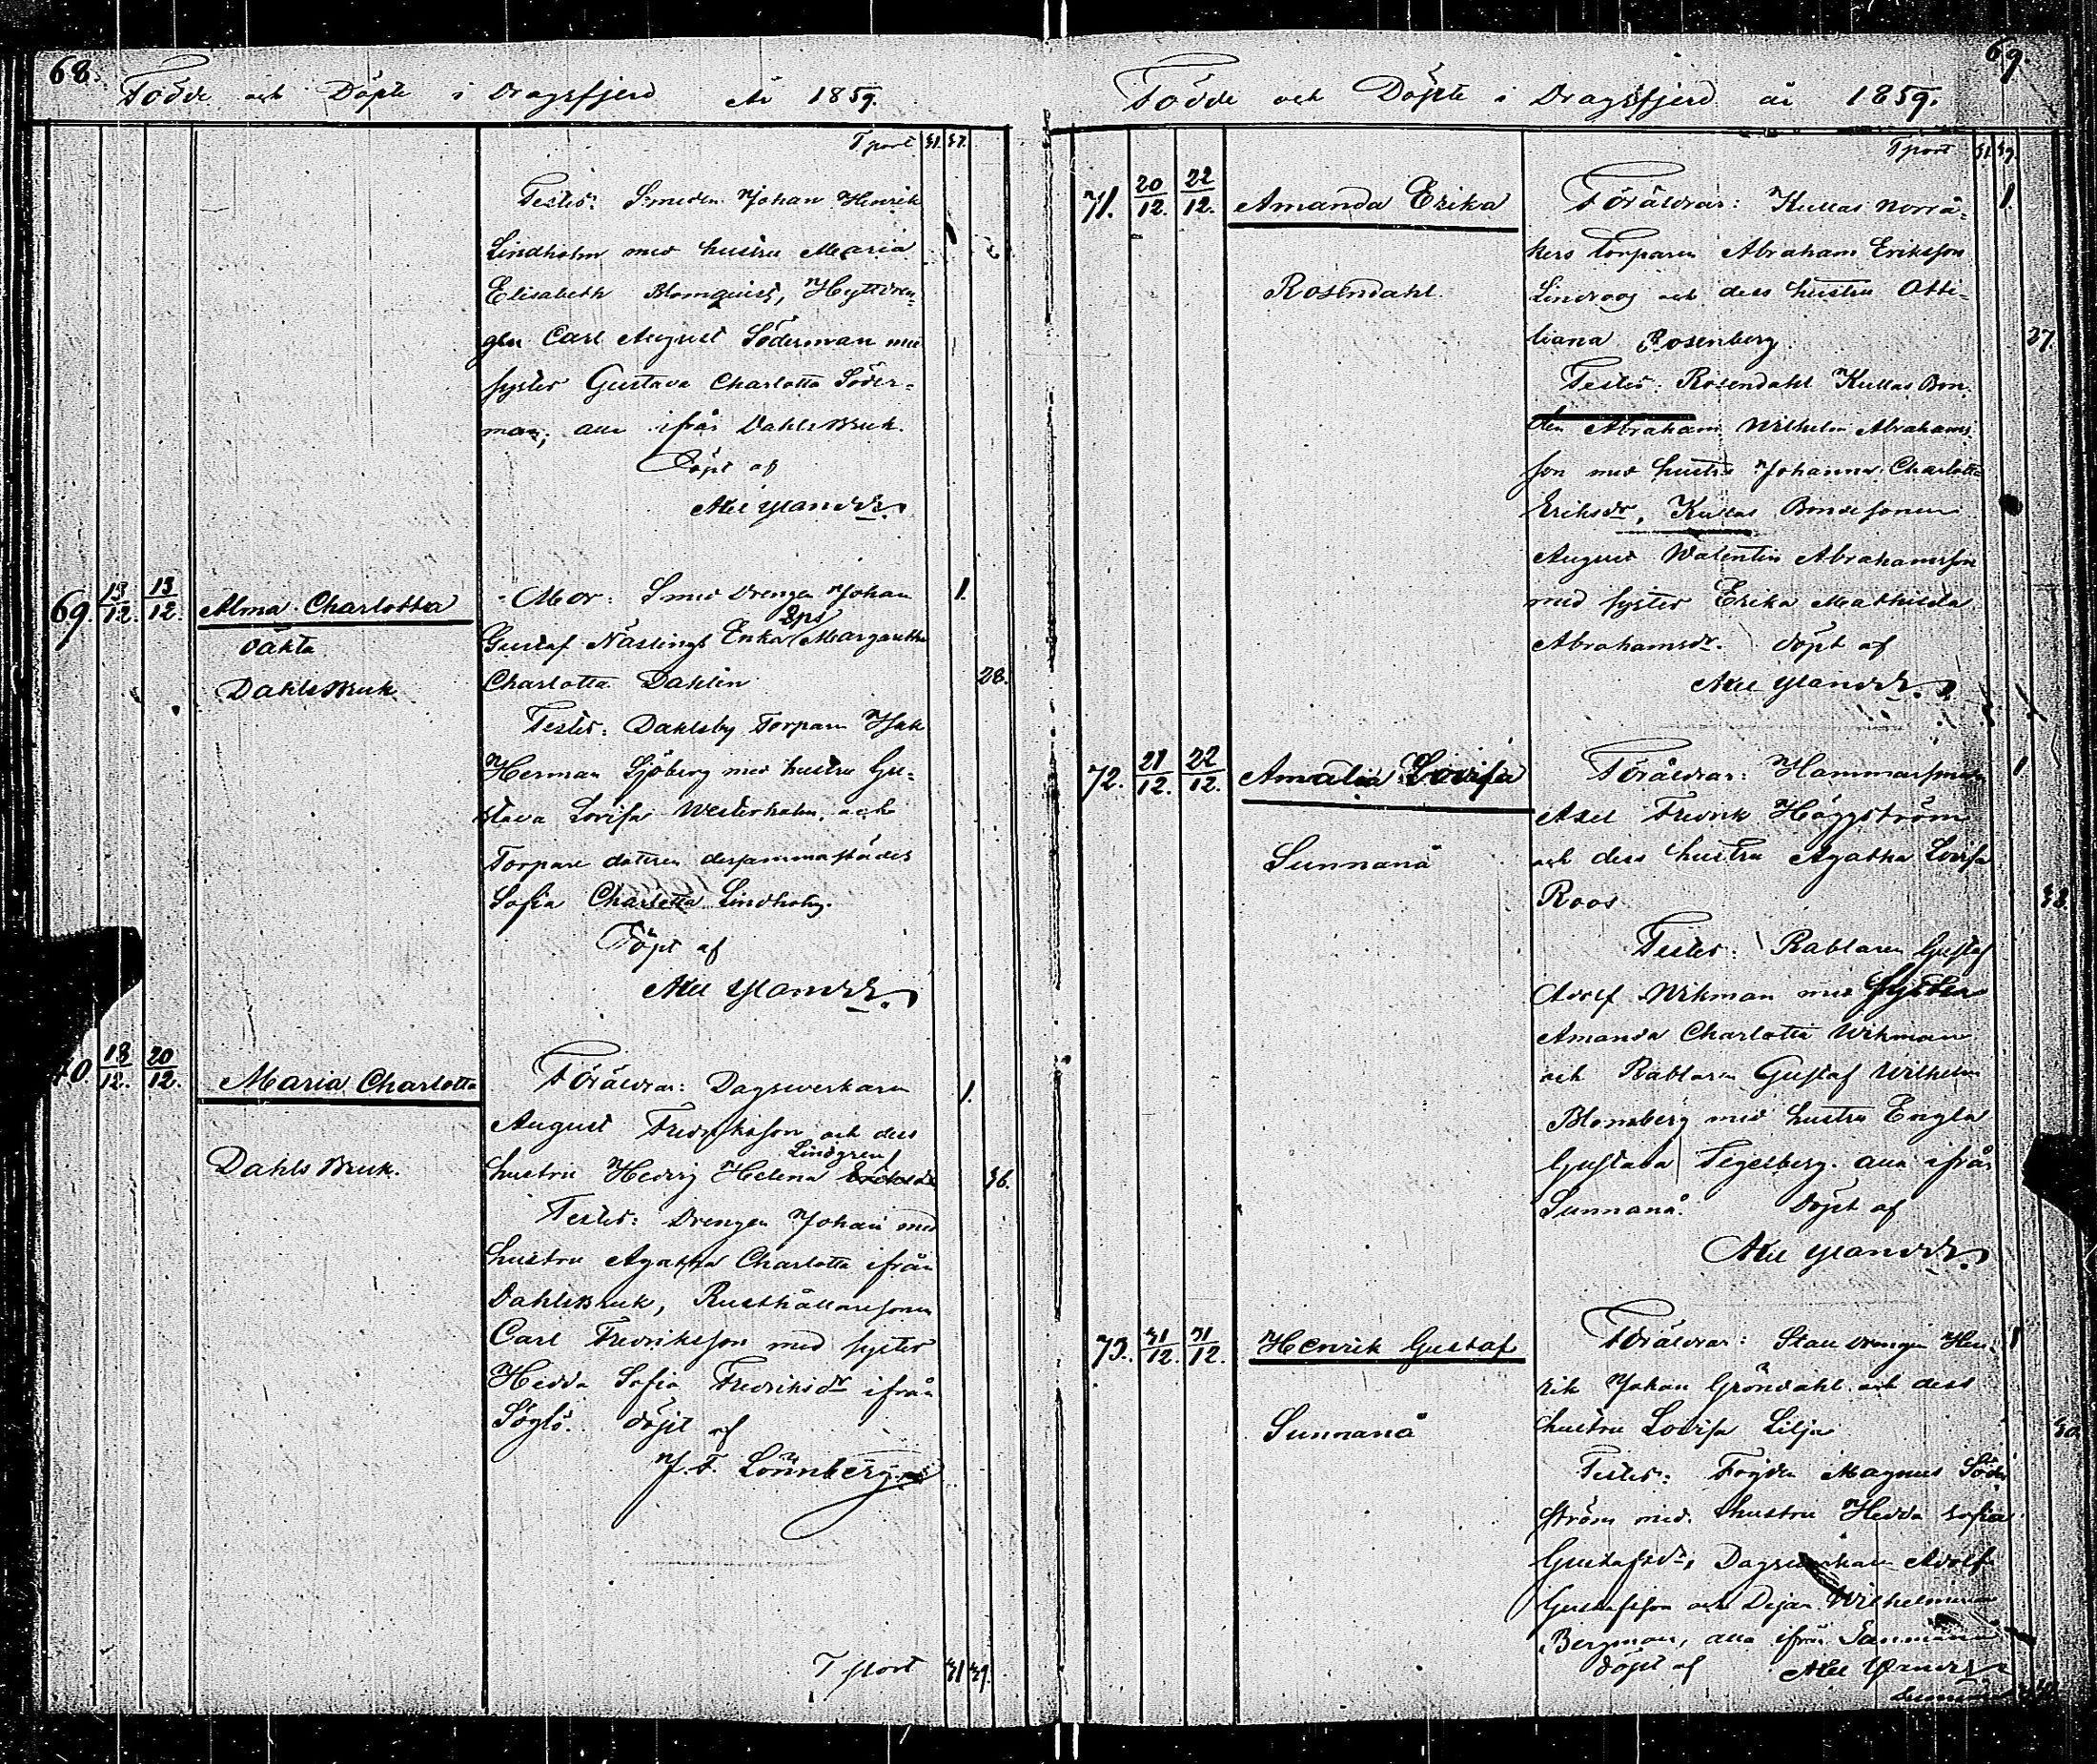 68.
Födde och Döpte i Dragsfjerd År 1859.
Tsport 31. 37.
Testes: Smeden Johan Henrik
Lindholm med hustru Maria
Elisabeth Blomquist, Hyttdren-
gen Carl August Söderman med
syster Gustava Charlotta Söder-
man, alla ifrån Dahls Bruk.
Döpt af
Axel Ylander.
69. 13/12. 13/12. Alma Charlotta
oäkta
Dahls Bruk
Mor: Smed Drengen Johan 1.
Eps
Gustaf Näslings Enka Margaretha
Charlotta Dahlin 28.
Testes: Dahlsby Torparn Isak
Herman Sjöberg med hustru Gu-
stava Lovisa Westerholm, och
Torpare dottren dersammastädes
Sofia Charlotta Lindholm.
Döpt af
Axel Ylander.
70. 13/12. 20/12. Maria Charlotta
Dahls Bruk.
Föräldrar: Dagsverkaren 1.
August Fredriksson och dess
Lindgren
hustru Hedvig Helena Eriksdr 36.
Testes: Drengen Johan med
hustru Agatha Charlotta ifrån
Dahls Bruk, Rusthållaresonen
Carl Fredriksson med syster
Hedda Sofia Fredriksdr ifrån
Söglö. döpt af
J. F. Lönnberg
Tsport 31 39.
69.
Födde och Döpte i Dragsfjerd år 1859.
Tsport 31. 39.
71. 20/12. 22/12. Amanda Erika
Rosendahl.
Föräldrar: Kullas Norrå- 1.
kers Torparen Abraham Eriksson
Lindroos och dess hustru Otti-
liana Rosenberg. 27.
Testes: Rosendahl Kullas Bon-
den Abraham Wilhelm Abrahams-
son med hustru Johanna Charlotta
Eriksdr, Kullas Bondesonen
August Walentin Abrahamsson
med syster Erika Mathilda
Abrahamsdr. döpt af
Axel Ylander.
72. 21/12. 22/12. Amalia Lovisa
Sunnanå
Föräldrar: Hammarsmeden 1
Axel Fredrik Häggström
och dess hustru Agatha Lovisa
Roos 38.
Testes: Rablaren Gustaf
Adolf Wikman med syster
Amanda Charlotta Wikman
och Rablaren Gustaf Wilhelm
Blomberg med hustru Engla
Gustava Tegelberg. alla ifrån
Sunnanå. Döpt af
Axel Ylander.
73. 31/12. 31/12. Henrik Gustaf
Sunnanå
Föräldrar: Stall drengen Hen- 1
rik Johan Gröndahl och dess
hustru Lovisa Lilja 30.
Testes: Fogden Magnus Söder-
ström med hustru Hedda Sofia
Gustafsdr, Dagsverkaren Adolf
Gustafsson och Pigan Wilhelmina
Bergman, alla ifrån Sunnanå
döpt af Axel Ylander